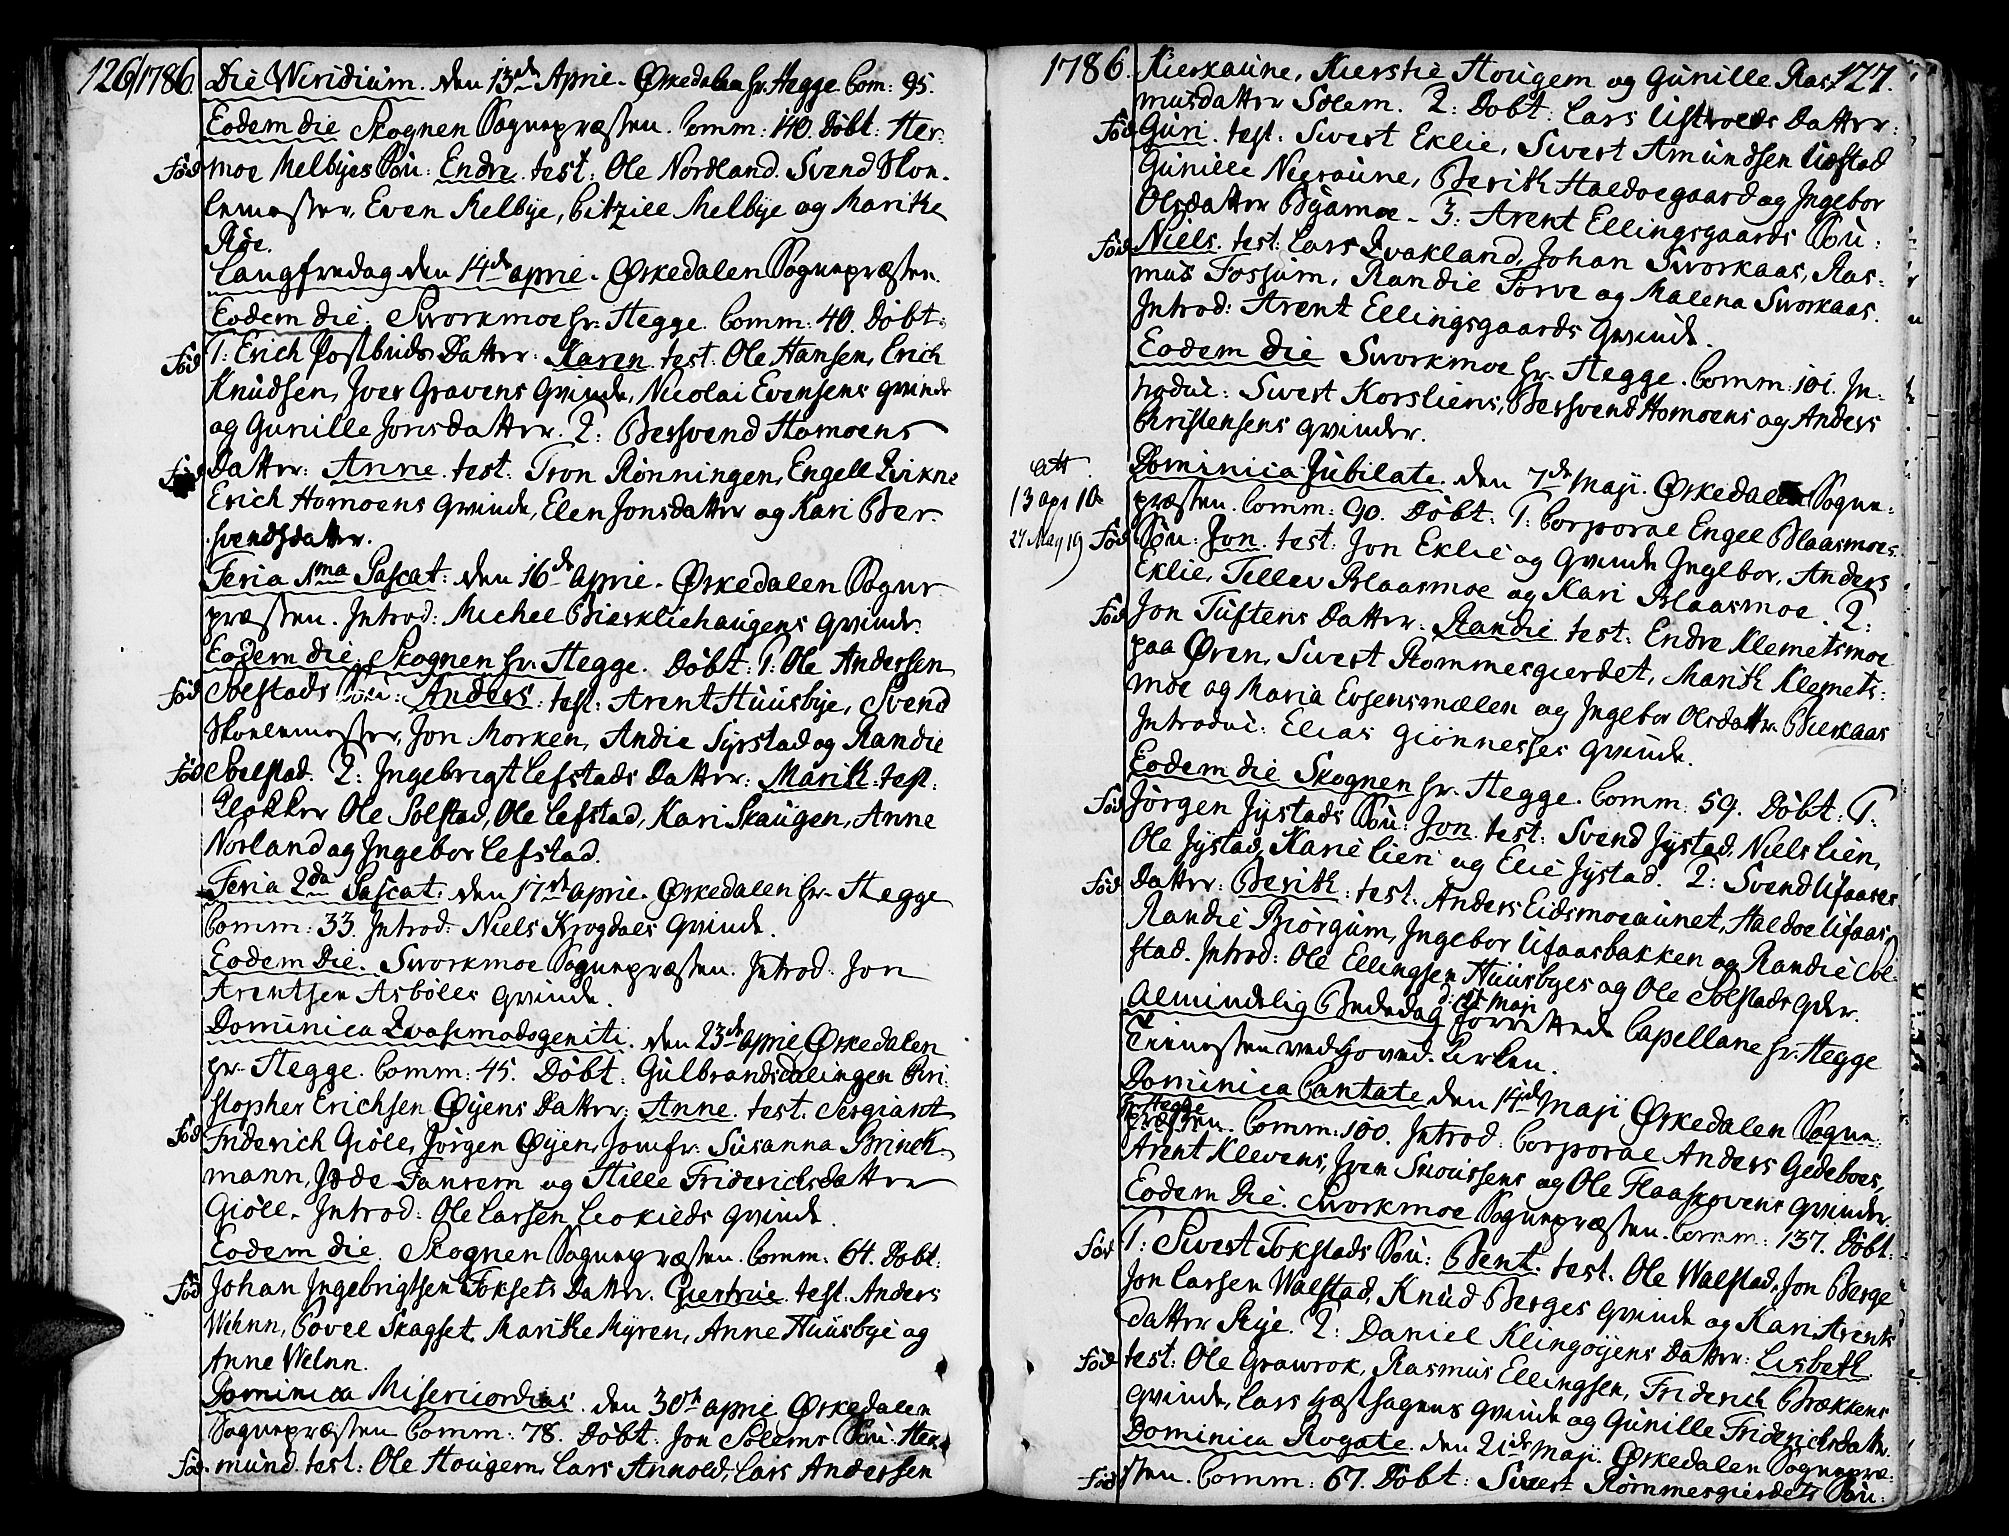 126/1786. Die Viridium. den 13de Aprie. Ørkedalen hr. Hegge Com: 95.
Eodem die Skognen Sognepræsten. Comm: 140. Døbt: Her-
Fød moe Melbyes Søn: Endre. test: Ole Nordland. Svend Skoe-
lemester, Even Melbye, Citzill Melbye og Marithe
Røe.
Langfredag den 14de aprie. Ørkedalen Sognepræsten.
Eodem die. Sworkmoe hr. Hegge. Comm: 40. Døbt:
Fød 1: Erich Postbuds Datter: Karen. test: Ole Hansen, Erich
Knudsen, Iver Gravens Qvinde, Nicolai Evensens qvinde
og Gunille Jonsdatter. 2: Bersvend Homoens
Fød Datter: Anne. test: Tron Rønningen, Engell Qvikne
Erich Homoens Qvinde, Elen Jonsdatter og Kari Ber-
svendsdatter.
Feria 1ma Pascat: den 16de Aprie. Ørkedalen Sogne-
præsten. Introd: Michel Bierkliehaugens Qvinde.
Eodem die, Skognen hr. Hegge. Døbt: 1: Ole Andersen
Fød Solstads Søn: Anders. test: Arent Huusbye, Svend
Skoelemester, Jon Morken, Andie Syrstad og Randie
Fød Solstad. 2: Ingebrigt Lefstads Datter: Marith. test:
Klokker Ole Solstad, Ole Lefstad, Kari Skaugen, Anne
Norland og Ingebor Lefstad.
Feria 2da Pascat: den 17de aprie. Ørkedalen hr. Hegge
Comm: 33. Introd: Niels Krogdals Qvinde.
Eodem Die. Sworkmoe Sognepræsten. Introd: Jon
Arentsen Asbøles Qvinde.
Dominica Qvasimodogeniti. den 23de aprie Ørkedalen
hr. Hegge. Comm: 45. Døbt: Gulbrandsdalingen Chri-
stopher Erichsen Øyens Datter: Anne. test: Sergiant
Fød Friderich Giøle, Jørgen Øyen, Jomfr: Susanna Brinck-
mann, Fanrem og Hille Friderichsdatter
Giøle. Introd: Ole Larsen Leokilds Qvinde.
Eodem die. Skognen Sognepræsten. Comm: 64. Døbt:
Fød Johan Ingebrigtsen Foksets Datter. Giertrue. test. Anders
Wehnn, Povel Skagset, Marithe Myren, Anne Huusbye og
Anne Welnn.
Dominica Misericordias. den 30te aprie Ørkedalen
Sognepræsten Comm: 78. Døbt: Jon Solems Søn: Her-
Fød. mund. test: Ole Hougem, Lars Arnold, Lars Andersen
1786. Kierkaune, Kierstie Hougem og Gunille Ras- 127.
musdatter Solem. 2: Døbt: Lars Datter:
Fød Guri. test: Sivert Eklie, Sivert Amundsen
Gunille Negraune, Berith Haldoegaard og Ingebor
Olsdatter Byamoe. 3: Arent Ellingsgaards Søn:
Fød Niels. test: Lars Qvakland, Johan Sworkaas, Ras-
mus Fossum, Randie Torve og Malena Sworkaas.
Introd: Arent Ellingsgaards Qvinde.
Eodem Die Sworkmoe hr. Hegge. Comm: 101. In-
troduc: Sivert Korsliens, Bersvend Homoens og Anders
Christensens qvinder.
Att Dominica Jubilate. den 7de Maji. Ørkedalen Sogne-
13 apr 10 præsten. Comm: 90. Døbt: 1: Corporal Engel Blaasmoes
27 May 19 Fød Søn: Jon. test: Jon Eklie og Qvinde Ingebor, Anders
Eklie, Tellev Blaasmoe og Kari Blaasmoe. 2:
Fød Jon Tuftens Datter: Randie. test: Endre Klemetsmoe
paa Øren, Sivert Rommesgierdet, Marith Klemets-
moe og Maria Evsensmælen og Ingebor Olsdatter Bierkaas
Introduc: Elias Giønnesses Qvinde.
Eodem die Skognen hr. Hegge. Comm: 59. Døbt: 1:
Fød Jørgen Jystads Søn: Jon. test: Svend Jystad, Niels Lien,
Ole Jystad, Karie Lien og Elie Jystad. 2: Svend Ufaases
Fød Datter: Berith: test: Anders Eidsmoeaunet, Haldoe Ufaas,
Randie Biørgum, Ingebor Ufaasbakken og Randie Sol-
stad. Introd: Ole Ellingsen Huusbyes og Ole Solstads Qder.
Almindelig Bededag d: Maji forrettede Capellane hr. Hegge
Tienesten ved Hoved-Kirken.
Dominica Cantate den 14de Maji Ørkedalen Sogne-
hr. Hegge præsten. Comm: 100. Introd: Corporal Anders Gedeboes,
Arent Klevens, Iven Snoussens og Ole Flaaskovens Qvinder.
Eodem Die. Sworkmoe Sognepræsten. Comm: 137. Døbt:
Fød 1: Sivert Tokstads Søn: Bent. test. Ole Walstad, Jon Berge
Jon Larsen Walstad, Knud Berges Qvinde og Kari Arents
datter Rye. 2: Daniel Klingøyens Datter: Lisbeth
Fød test: Ole Grawrok, Rasmus Ellingsen, Friderich Brækkens
qvinde, Lars Hæsthagens Qvinde og Gunille Friderichsdatter.
Dominica Rogate. den 21de Maji. Ørkedalen Sognepræ-
Fød sten. Comm: 67. Døbt: Sivert Rømmesgierdets Søn: